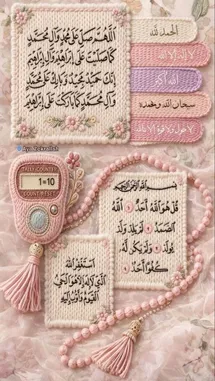 اللهم صل على محمد وآل محمد
كما صليت على إبراهيم وآل إبراهيم
إنك حميد مجيد وبارك على محمد
وآل محمد كما باركت على إبراهيم
الحمد لله
لا إله إلا الله
الله أكبر
سبحان الله وبحمده
لا حول ولا قوة إلا بالله
TALLY COUNTER
1=10
بسم الله الرحمن الرحيم
قل هو الله أحد الله
الصمد لم يلد ولم
يولد ولم يكن له
كفوا أحد
أستغفر الله
الذي لا إله إلا هو الحي
القيوم وأتوب إليه